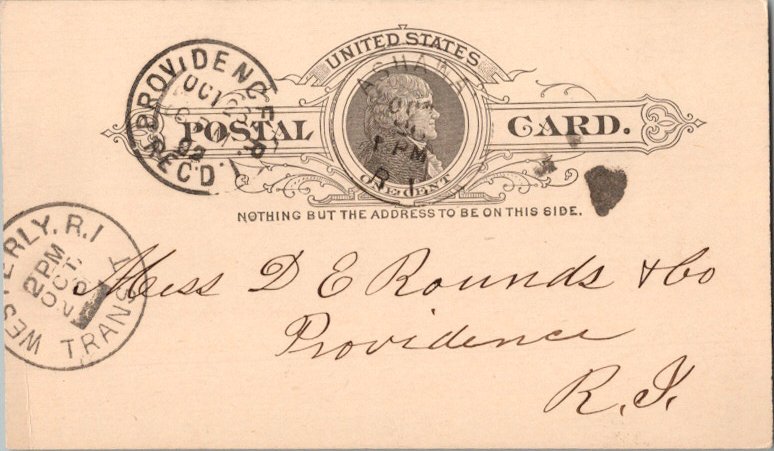 UNITED STATES
POSTAL CARD.
ONE CENT
NOTHING BUT THE ADDRESS TO BE ON THIS SIDE.
PROVIDENCE, R.I.
OCT
REC'D.
ASHAWA
OCT
1 PM
R.I.
WESTERLY, R.I.
2 PM
OCT
TRANSIT
Mess D E Rounds & Co
Providence
R.I.